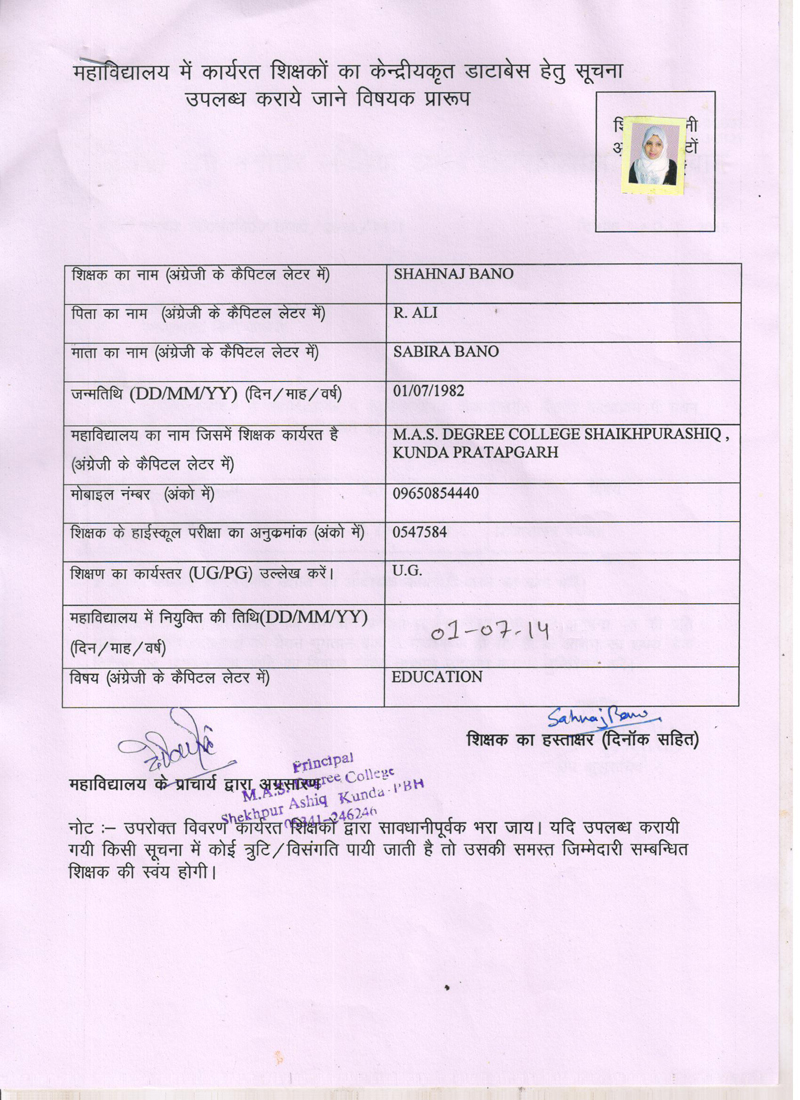 महाविद्यालय में कार्यरत शिक्षकों का केन्द्रीयकृत डाटाबेस हेतु सूचना
उपलब्ध कराये जाने विषयक प्रारूप
शिक्षक का नाम (अंग्रेजी के कैपिटल लेटर में) SHAHNAJ BANO
पिता का नाम (अंग्रेजी के कैपिटल लेटर में) R. ALI
माता का नाम (अंग्रेजी के कैपिटल लेटर में) SABIRA BANO
जन्मतिथि (DD/MM/YY) (दिन/माह/वर्ष) 01/07/1982
महाविद्यालय का नाम जिसमें शिक्षक कार्यरत है
(अंग्रेजी के कैपिटल लेटर में)
M.A.S. DEGREE COLLEGE SHAIKHPURASHIQ ,
KUNDA PRATAPGARH
मोबाइल नंम्बर (अंको में) 09650854440
शिक्षक के हाईस्कूल परीक्षा का अनुक्रमांक (अंको में) 0547584
शिक्षण का कार्यस्तर (UG/PG) उल्लेख करें। U.G.
महाविद्यालय में नियुक्ति की तिथि(DD/MM/YY)
(दिन/माह/वर्ष)
01-07-14
विषय (अंग्रेजी के कैपिटल लेटर में) EDUCATION
Sahnaj Bano
शिक्षक का हस्ताक्षर (दिनॉक सहित)
महाविद्यालय के प्राचार्य द्वारा अग्रसारण
Principal
M.A.S. Degree College
Shekhpur Ashiq Kunda-PBH
05341-246246
नोट :– उपरोक्त विवरण कार्यरत शिक्षकों द्वारा सावधानीपूर्वक भरा जाय। यदि उपलब्ध करायी
गयी किसी सूचना में कोई त्रुटि/विसंगति पायी जाती है तो उसकी समस्त जिम्मेदारी सम्बन्धित
शिक्षक की स्वंय होगी।